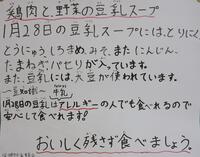 鶏肉と、野菜の豆乳スープ
1月28日の豆乳スープには、とりにく
とうにゅう、しろきめ、みそ、また にんじん、
たまねぎ、パセリが入っています。
また、豆乳には、大豆が使われています。
～豆知識～ 牛乳
1月28日の豆乳はアレルギーの人でも食べれるので
安心して食べれます！
おいしく残さず食べましょう。